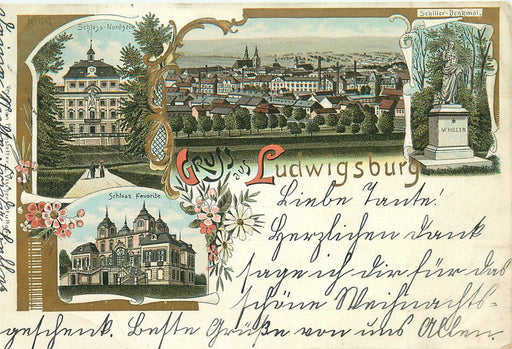 Schloss-Nordseite
Schiller-Denkmal.
SCHILLER
Gruss aus Ludwigsburg
Schloss Favorite
Liebe Tante!
Herzlichen Dank
sage ich dir für das
schöne Weihnachts-
geschenk. Beste Grüße von uns Allen.